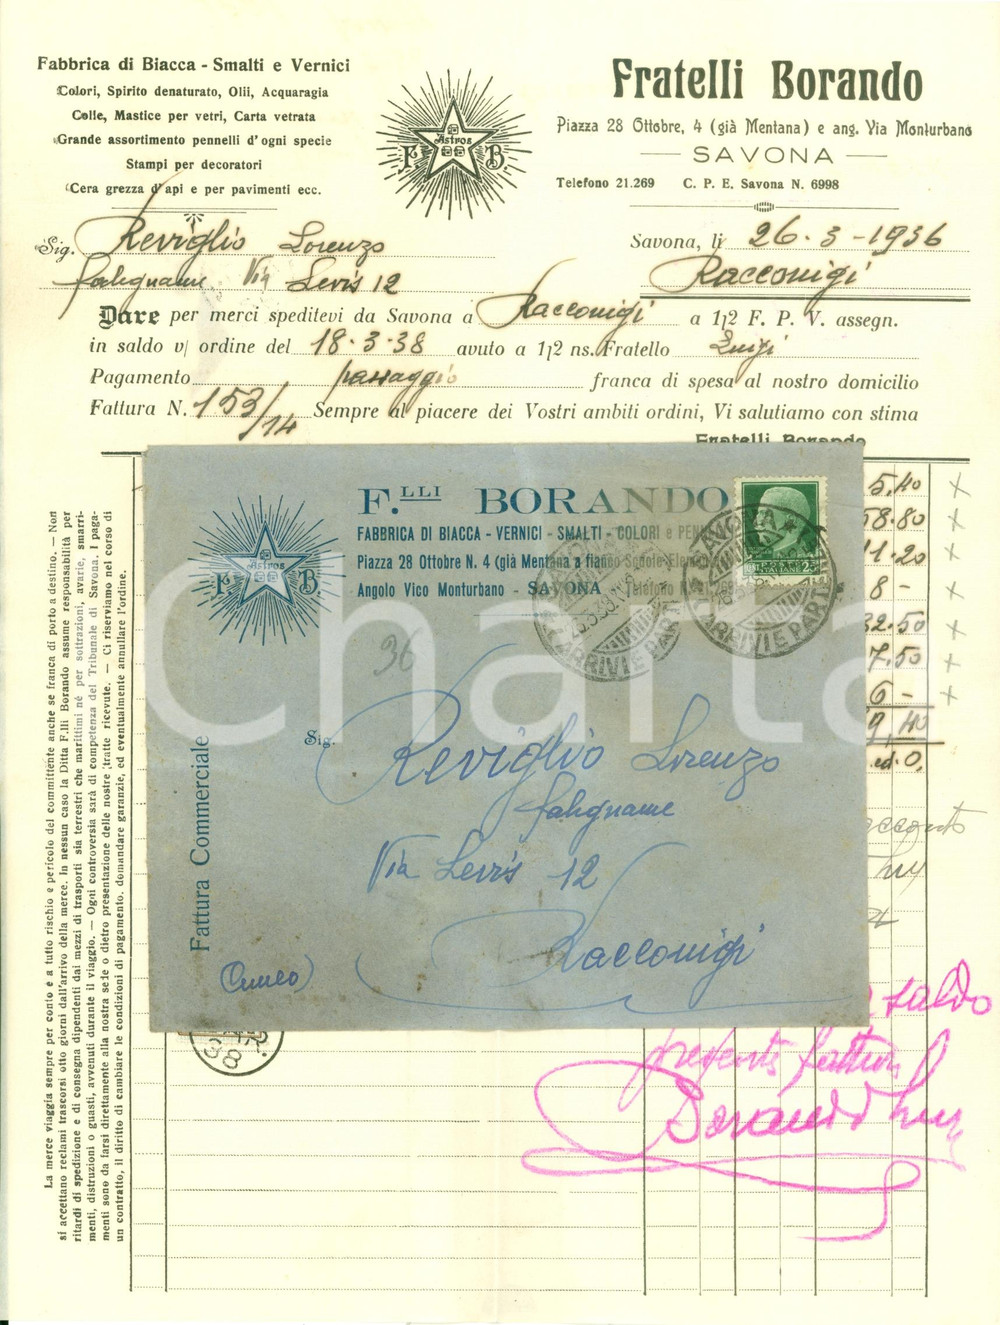 Fabbrica di Biacca - Smalti e Vernici
Colori, Spirito denaturato, Olii, Acquaragia
Colle, Mastice per vetri, Carta vetrata
Grande assortimento pennelli d'ogni specie
Stampi per decoratori
Cera grezza d'api e per pavimenti ecc.
Astros
F. B.
Fratelli Borando
Piazza 28 Ottobre, 4 (già Mentana) e ang. Via Monturbano
SAVONA
Telefono 21.269 C. P. E. Savona N. 6998
Sig. Reviglio Lorenzo
falegname Via Levis 12
Savona, li 26-3-1936
Racconigi
Dare per merci speditevi da Savona a Racconigi a 1/2 F. P. V. assegn.
in saldo v/ ordine del 18-3-38 avuto a 1/2 ns. Fratello Luigi
Pagamento passaggio franca di spesa al nostro domicilio
Fattura N. 153/14 Sempre al piacere dei Vostri ambiti ordini, Vi salutiamo con stima
Fratelli Borando
5.40
58.80
11.20
8 -
32.50
7.50
6 -
9,40
0,
acconto
saldo
presente fattura
Borando
La merce viaggia sempre per conto e a tutto rischio e pericolo del committente anche se franca di porto a destino. — Non
si accettano reclami trascorsi otto giorni dall'arrivo della merce. In nessun caso la Ditta F.lli Borando assume responsabilità per
ritardi di spedizione e di consegna dipendenti dai mezzi di trasporti sia terrestri che marittimi nè per sottrazioni, avarie, smarri-
menti, distruzioni o guasti, avvenuti durante il viaggio. — Ogni controversia sarà di competenza del Tribunale di Savona. I paga-
menti sono da farsi direttamente alla nostra sede o dietro presentazione delle nostre tratte ricevute. — Ci riserviamo nel corso di
un contratto, il diritto di cambiare le condizioni di pagamento. domandare garanzie, ed eventualmente annullare l'ordine.
F.LLI BORANDO
FABBRICA DI BIACCA - VERNICI - SMALTI - COLORI e PENN
Piazza 28 Ottobre N. 4 (già Mentana a fianco Scuole Elem
Angolo Vico Monturbano - SAVONA Telefono N.
Astros
F. B.
ARRIVI E PART
ARRIVI E PARTE
36
Fattura Commerciale
Sig. Reviglio Lorenzo
falegname
Via Levis 12
Racconigi
(Cuneo)
38
Charta